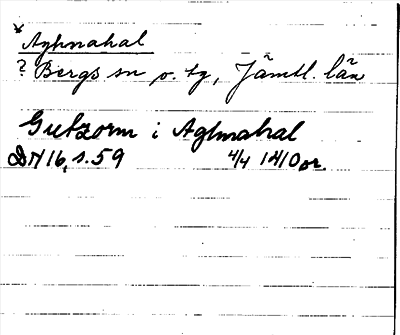 * Aghnahal
? Bergs sn o. tg, Jämtl. län
Gutzorm i Aghnahal
DN 16, s. 59 4/4 1410 or.